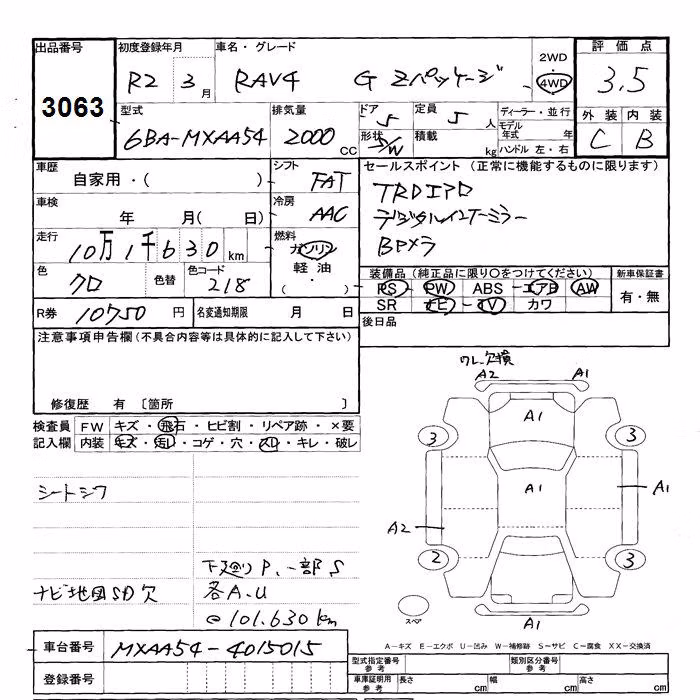 出品番号 初度登録年月 車名・グレード 2WD 評価点
3063 R2 3月 RAV4 G Zパッケージ 4WD 3.5
型式 排気量 ドア 定員 ディーラー・並行 外装 内装
6BA-MXAA54 2000 CC 5 5人 モデル年式 年 C B
形状 S/W 積載 kg ハンドル 左・右
車歴 自家用・( ) シフト FAT セールスポイント (正常に機能するものに限ります)
車検 年 月(日) 冷房 AAC TRDエアロ
デジタルインナーミラー
走行 10万1千630km 燃料 ガソリン Bカメラ
軽油
( ・ )
色 クロ 色替 色コード 218 装備品 (純正品に限り○をつけてください) 新車保証書
PS PW ABS エアB AW 有・無
SR ナビ TV カワ
R券 10750円 名変通知期限 月 日 後日品
注意事項申告欄(不具合内容等は具体的に記入して下さい)
修復歴 有 〔箇所 〕
検査員記入欄 FW キズ・飛石・ヒビ割・リペア跡・×要
内装 キズ・汚レ・コゲ・穴・スレ・キレ・破レ
シートシワ
下廻りP、一部S
ナビ地図SD欠 各A.U
@101.630km
ワレ、欠損
A2 A1
A1
3 3
A1 A1
A2
2 3
スペア A1
A−キズ E−エクボ U−凹み W−補修跡 S−サビ C−腐食 XX−交換済
車台番号 MXAA54-4015015
登録番号
型式指定番号 参考 類別区分番号 参考
車庫証明用 参考 長さ cm 幅 cm 高さ cm